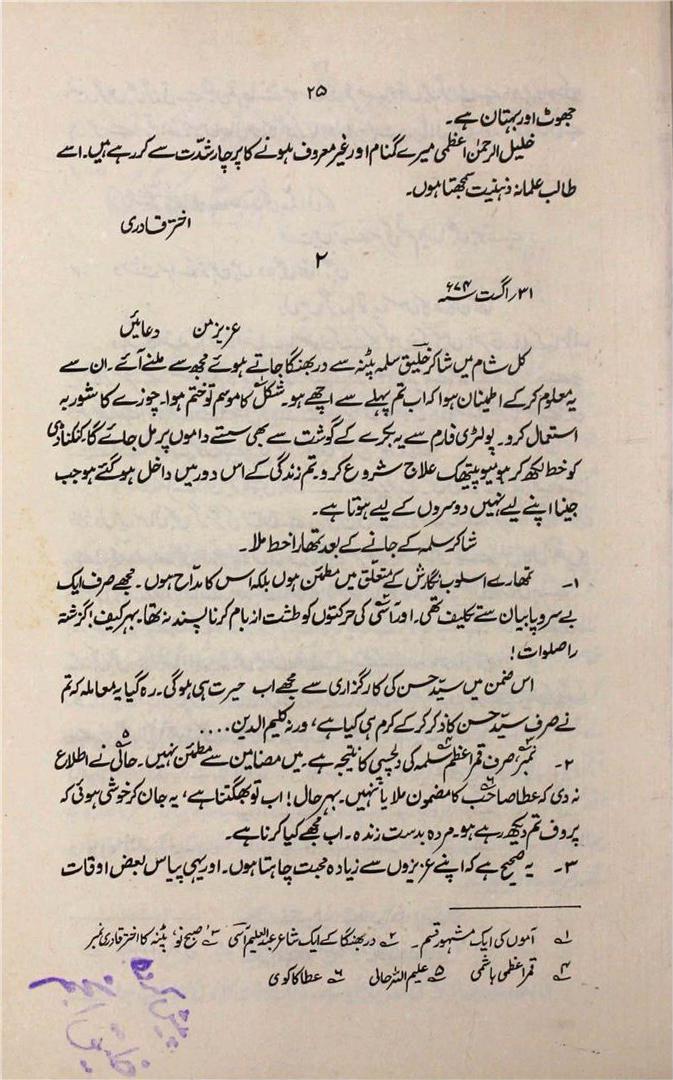 ۲۵
جھوٹ اور بہتان ہے۔
خلیل الرحمٰن اعظمی میرے گمنام اور غیر معروف ہونے کا پرچار شدّت سے کر رہے ہیں۔ اسے
طالب علمانہ ذہنیت سمجھتا ہوں۔
اختر قادری
۲
۳۱؍ اگست ۷۴ء
عزیز من دعائیں
کل شام میں شاکر خلیق سلمہ پٹنہ سے دربھنگا جاتے ہوئے مجھ سے ملنے آئے۔ ان سے
یہ معلوم کر کے اطمینان ہوا کہ اب تم پہلے سے اچھے ہو۔ شکل کا موسم تو ختم ہوا۔ چوزے کا شوربہ
استعمال کرو۔ پولٹری فارم سے یہ بکرے کے گوشت سے بھی سستے داموں پر مل جائے گا۔
کو خط لکھ کر ہومیوپیتھک علاج شروع کرو۔ تم زندگی کے اس دور میں داخل ہو گئے ہو جب
جینا اپنے لیے نہیں دوسروں کے لیے ہوتا ہے۔
شاکر سلمہ کے جانے کے بعد تمھارا خط ملا۔
۱۔ تمھارے اسلوب نگارش کے متعلق میں مطمئن ہوں بلکہ اس کا مدّاح ہوں۔ مجھے صرف ایک
بے سروپا بیان سے تکلیف تھی۔ اور آسی۲ کی حرکتوں کو طشت از بام کرنا پسند نہ تھا۔ بہر کیف! گزشتہ
را صلوات!
اس ضمن میں سیّد حسن کی کارگزاری سے مجھے اب حیرت ہی ہو گی۔ رہ گیا یہ معاملہ کہ تم
نے صرف سیّد حسن کا ذکر کر کے کرم ہی کیا ہے، ورنہ کلیم الدین....
۲۔ نمبر۳ صرف قمر اعظم۴ سلمہ کی دلچسپی کا نتیجہ ہے۔ میں مضامین سے مطمئن نہیں۔ حالی۵ نے اطلاع
نہ دی کہ عطا صاحب۶ کا مضمون ملا یا نہیں۔ بہر حال! اب تو بھگتنا ہے، یہ جان کر خوشی ہوئی کہ
پروف تم دیکھ رہے ہو۔ مردہ بدست زندہ۔ اب مجھے کیا کرنا ہے۔
۳۔ یہ صحیح ہے کہ اپنے عزیزوں سے زیادہ محبت چاہتا ہوں۔ اور یہی پیاس بعض اوقات
۱ آموں کی ایک مشہور قسم۔ ۲ دربھنگا کے ایک شاعر عبدالعلیم آسی ۳ 'صبح نو' پٹنہ کا اختر قادری نمبر
۴ قمر اعظمی ہاشمی ۵ علیم اللہ حالی ۶ عطا کاکوی
پیش کردہ
خلیق انجم